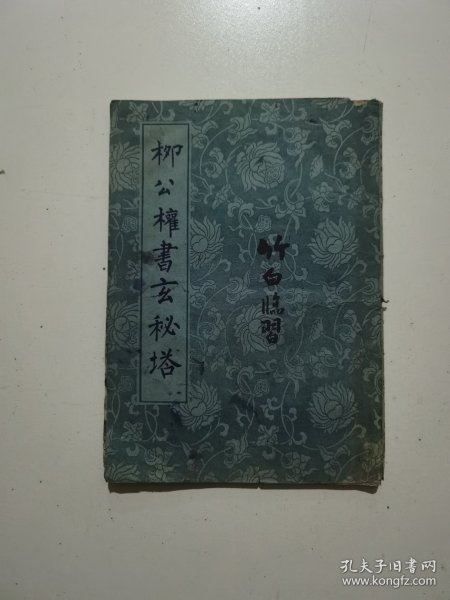 柳公權書玄秘塔
竹白臨習
孔夫子旧书网
www.kongfz.com